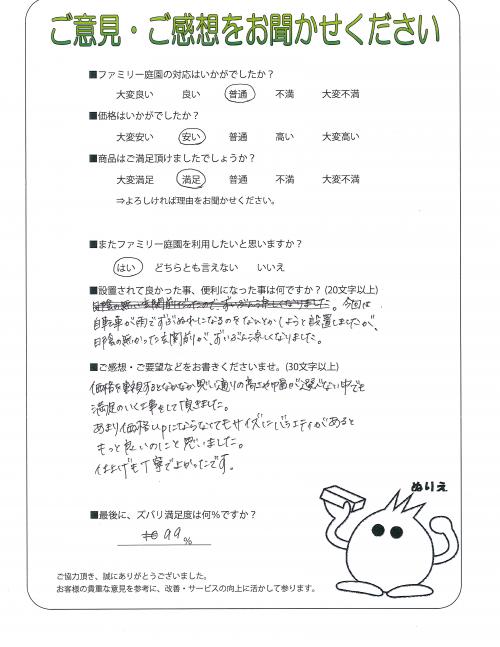 ご意見・ご感想をお聞かせください
■ファミリー庭園の対応はいかがでしたか?
大変良い 良い 普通 不満 大変不満
■価格はいかがでしたか?
大変安い 安い 普通 高い 大変高い
■商品はご満足頂けましたでしょうか?
大変満足 満足 普通 不満 大変不満
⇒よろしければ理由をお聞かせください。
■またファミリー庭園を利用したいと思いますか?
はい どちらとも言えない いいえ
■設置されて良かった事、便利になった事は何ですか? (20文字以上)
日陰の無い玄関前だったので、ずいぶん涼しくなりました。今回は
自転車が雨でずぶぬれになるのをなんとかしようと設置しましたが、
日陰の無かった玄関前が、ずいぶん涼しくなりました。
■ご感想・ご要望などをお書きくださいませ。(30文字以上)
価格を重視するとなかなか思い通りの高さや巾が選べない中でも
満足のいく工事をして頂きました。
あまり価格UPにならなくてもサイズにバラエティがあると
もっと良いのにと思いました。
仕上げも丁寧で上かったです。
■最後に、ズバリ満足度は何%ですか?
99 %
ぬりえ
ご協力頂き、誠にありがとうございました。
お客様の貴重な意見を参考に、改善・サービスの向上に活かして参ります。